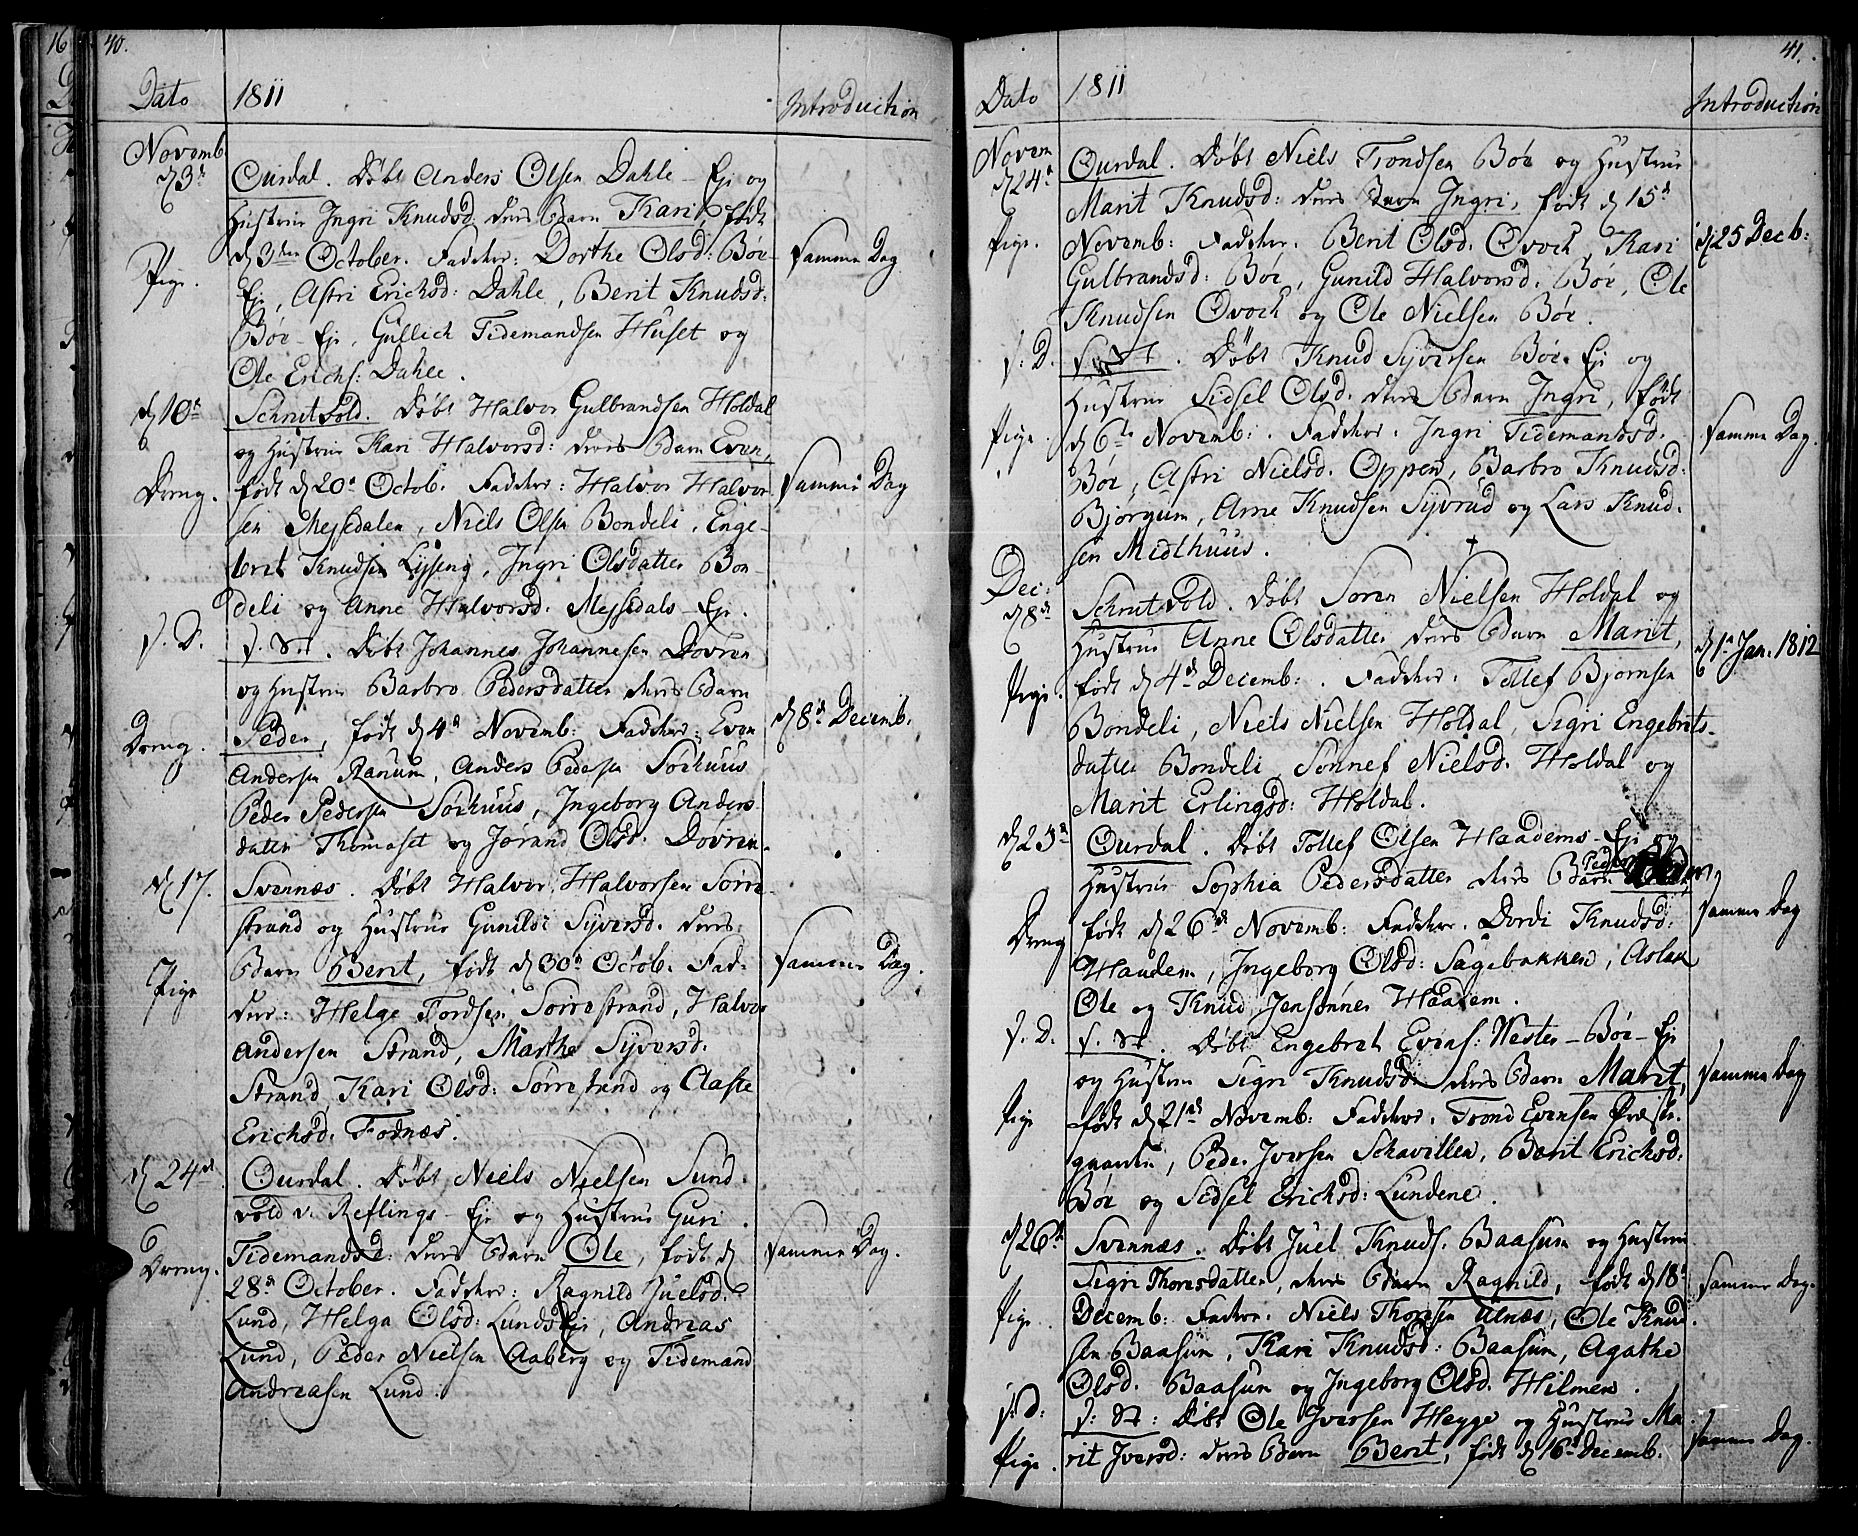 40.
Dato 1811 Introduction
Novemb
d 3d Ourdal. Døbt Anders Olsen Dahle-Eje og
Hustrue Ingri Knudsd. deres Barn Kari født
d 3die October. Faddere: Dorthe Olsd: Bøe-
Pige. Eje, Astri Erichsd: Dahle, Berit Knudsd: Samme Dag
Bøe-Eje, Gullich Tidemandsen Huset og
Ole Erichs: Dahle.
d 10d Schrutvold. Døbt Halvor Gulbrandsen Holdal
og Hustrue Kari Halvorsd: deres Barn Even,
Dreng. født d 20d Octob. Faddere: Halvor Halvor- Samme Dag
sen Mejsdalen, Niels Olsen Bondeli, Enge-
bret Knudsen Lysseng, Ingri Olsdatter Bon-
deli og Anne Halvorsd. Mejsdals-Eje.
s. D. s. St. Døbt Johannes Johannesen Dovren
og Hustrue Barbro Pedersdatter deres Barn
Dreng. Peder, født d 4d Novemb: Faddere: Even d 8d Decemb:
Andersen Ranum, Anders Pedersen Sørhuus
Peder Pedersen Sørhuus, Ingeborg Anders-
datter Thomaset og Jørand Olsd: Dovren.
d 17. Svennæs. Døbt Halvor Halvorsen Sørre-
strand og Hustrue Gunild Syversd. deres
Pige Barn Berit, født d 30d Octob. Fad- Samme Dag.
dere: Helge Tordsen Sørrestrand, Halvor
Andersen Strand, Marthe Syversd.
Strand, Kari Olsd: Sørrestrand og Claste
Erichsd. Fodnæs.
d 24d Ourdal. Døbt Niels Nielsen Sund-
vold v. Reflings-Eje og Hustrue Guri
Dreng. Tidemandsd: deres Barn Ole, født d Samme Dag.
28d October. Faddere: Ragnild Juelsd.
Lund, Helga Olsd: Lunds Eje, Andreas
Lund, Peder Nielsen Aaberg og Tidemand
Andreasen Lund.
41.
Dato 1811 Introduction
Novem
d 24d Ourdal. Døbt Niels Trondsen Bøe og Hustrue
Marit Knudsd: deres Barn Ingri, født d 15d
Pige. Novemb: Faddere. Berit Olsd. Qvock, Kari d 25 Decb:
Gulbrandsd: Bøe, Gunild Halvorsd. Bøe, Ole
Knudsen Qvock og Ole Nielsen Bøe.
s. D. s. St. Døbt Knud Syversen Bøe-Eje og
Hustrue Sidsel Olsd. deres Barn Ingri, født
Pige. d 6te Novemb: Faddere. Ingri Tidemandsd. Samme Dag.
Bøe, Astri Nielsd. Oppen, Barbro Knudsd:
Bjørgum, Arne Knudsen Syvrud og Lars Knud-
sen Midthuus.
Dec:
d 8d Schrutvold. Døbt Søren Nielsen Holdal og
Hustrue Anne Olsdatter deres Barn Marit, d 1d Jan. 1812
Pige. født d 4d Decemb: Faddere. Tollef Bjørnsen
Bondeli, Niels Nielsen Holdal, Sigri Engebrets-
datter Bondeli, Sønnef Nielsd. Holdal og
Marit Erlingsd: Holdal.
d 23d Ourdal. Døbt Tollef Olsen Haadems-Eje og
Hustrue Sophia Pedersdatter deres Barn Peder
Dreng født d 26d Novemb: Faddere. Dordi Knudsd: Samme Dag
Haudem, Ingeborg Olsd: Sagebakken, Aslak
Ole og Knud Jensønner Haadem.
s. D. s. St. Døbt Engebret Evens: Wester-Bøe-Eje
og Hustrue Sigri Knudsd: deres Barn Marit, Samme Dag
Pige født d 21d Novemb: Faddere. Trond Evensen Præste-
gaarden, Peder Iversen Schavillen, Berit Erichsd:
Bøe og Sidsel Erichsd: Lundene.
d 26d Svennæs. Døbt Juel Knuds. Baasum og Hustrue
Sigri Thoresdatter, deres Barn Ragnild, født d 18d Samme Dag.
Pige Decemb: Faddere. Niels Thoresen Ulnæs, Ole Knud-
sen Baasum, Kari Knudsd: Baasum, Agathe
Olsd. Baasum og Ingeborg Olsd. Hilmen.
s. D. s. St. Døbt Ole Iversen Hegge og Hustrue Ma-
Pige. rit Iversd: deres Barn Berit, født d 16d Decemb. Samme Dag.